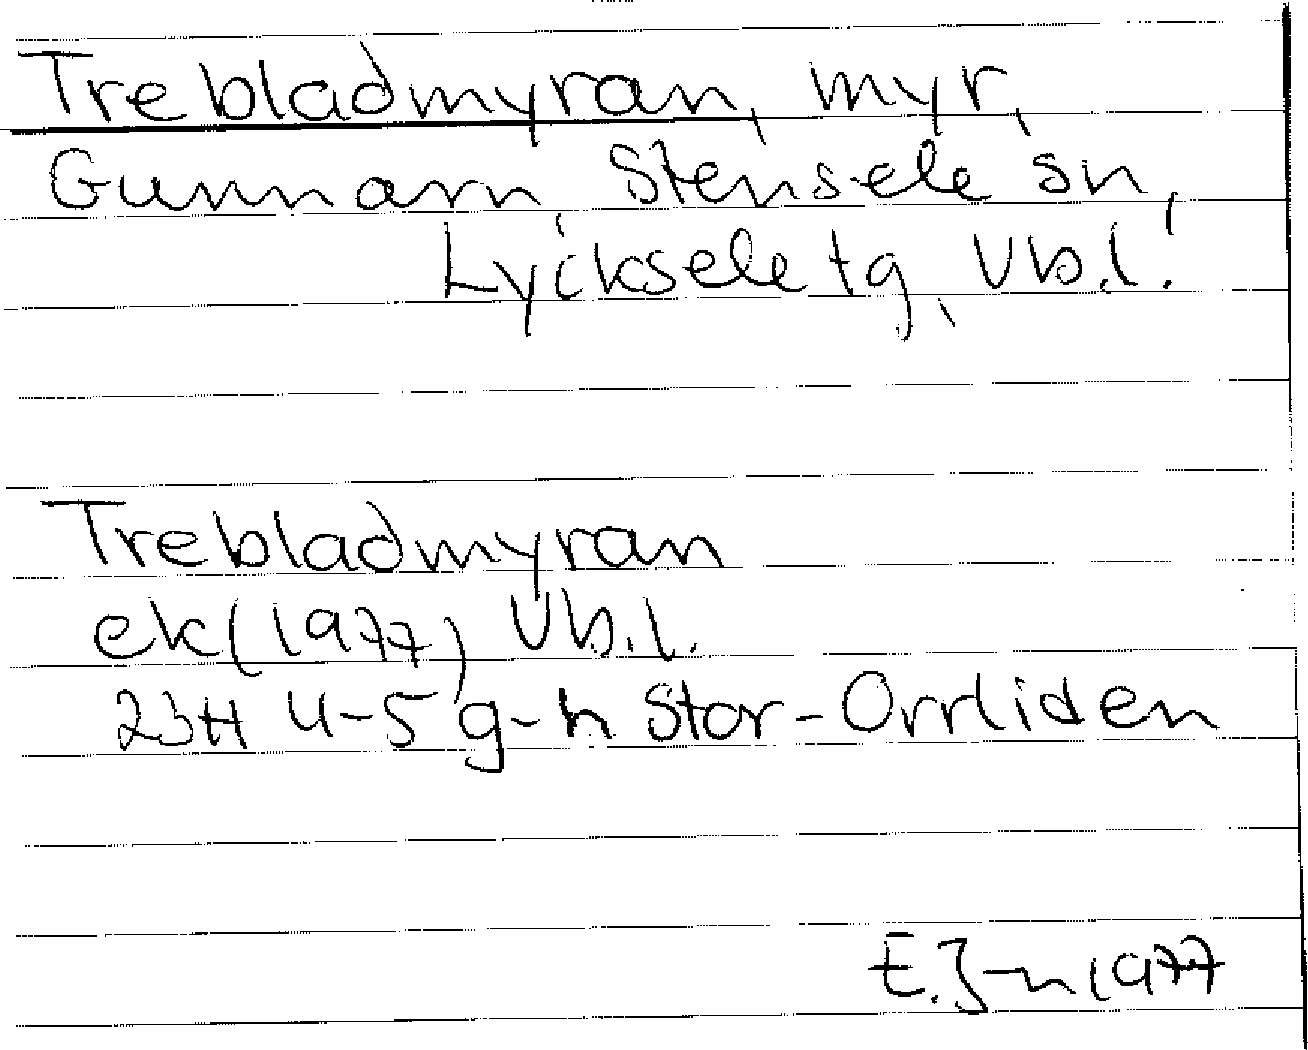 Trebladmyran, myr,
Gunnarn, Stensele sn,
Lycksele tg, Vb.l.
Trebladmyran
ek (1977) Vb.l.
23H 4-5 g-h Stor-Orrliden
E.J-n 1977